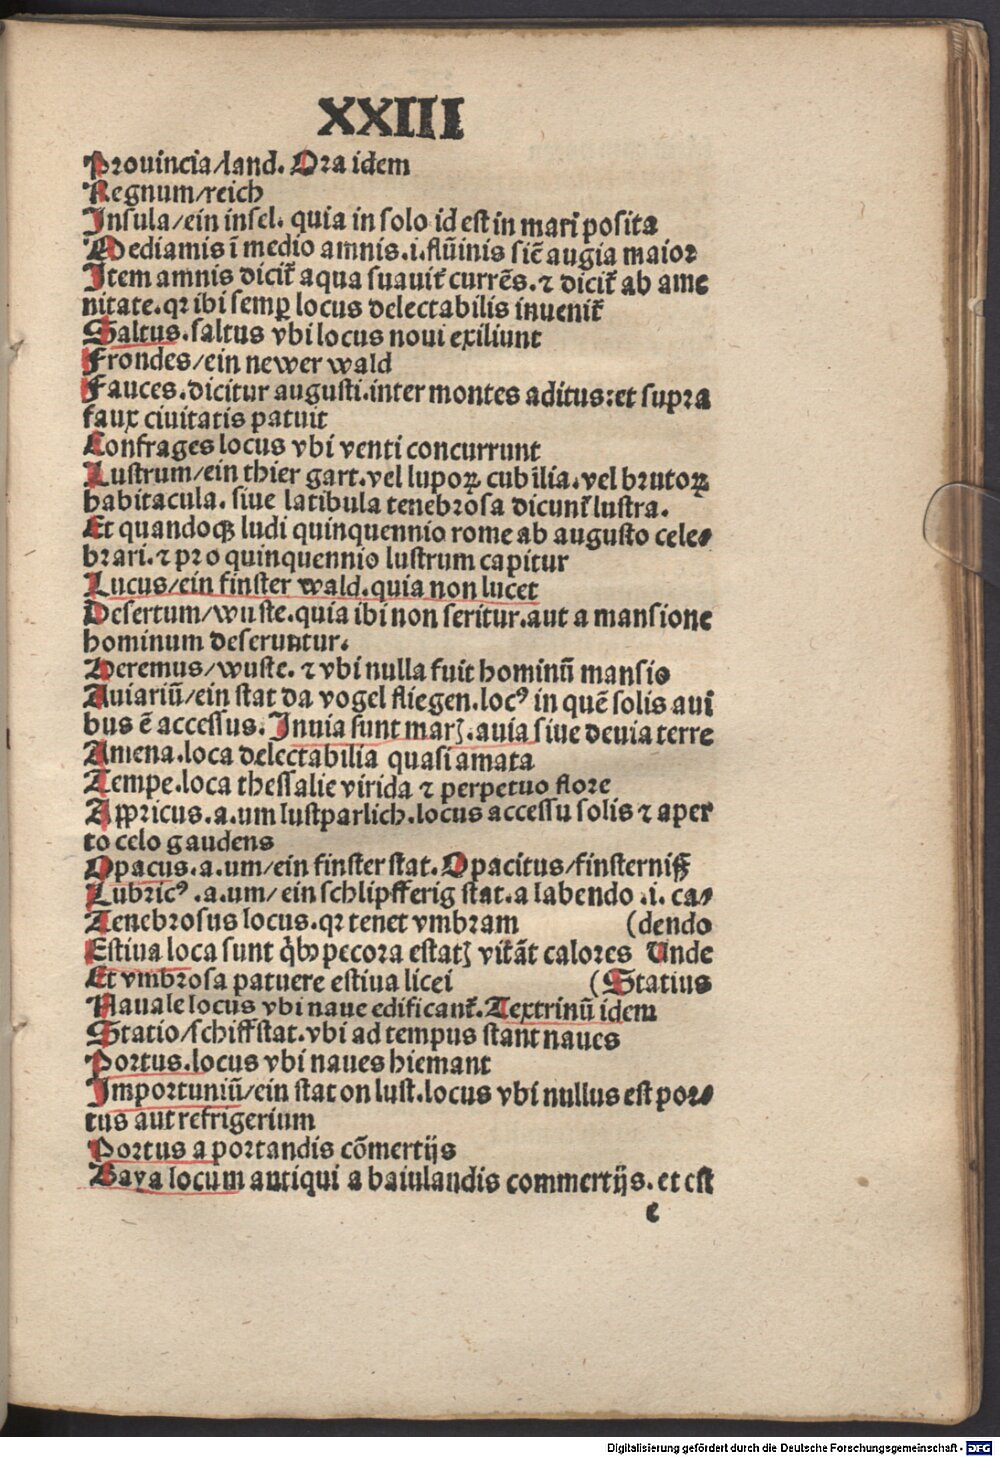 XXIII
Prouincia/land. Ora idem
Regnum/reich
Insula/ein insel. quia in solo id est in mari posita
Mediamis ī medio amnis.i.flūinis sic̄ augia maior
Item amnis dicit᷑ aqua suauit᷑ currēs.⁊ dicit᷑ ab ame
nitate.qꝛ ibi semꝑ locus delectabilis inuenit᷑
Saltus.saltus vbi locus noui exiliunt
Frondes/ein newer wald
Fauces.dicitur augusti.inter montes aditus:et supra
faux ciuitatis patuit
Confrages locus vbi venti concurrunt
Lustrum/ein thier gart.vel lupoꝝ cubilia.vel brutoꝝ
habitacula. siue latibula tenebrosa dicunt᷑ lustra.
Et quandoqꝫ ludi quinquennio rome ab augusto cele⸗
brari.⁊ pro quinquennio lustrum capitur
Lucus/ein finster wald.quia non lucet
Desertum/wuste.quia ibi non seritur.aut a mansione
hominum deseruntur.
Heremus/wuste. ⁊ vbi nulla fuit hominū mansio
Auiariū/ein stat da vogel fliegen.locꝰ in quē solis aui
bus ē accessus. Inuia sunt marꝭ.auia siue deuia terre
Amena.loca delectabilia quasi amata
Tempe.loca thessalie virida ⁊ perpetuo flore
Appricus.a.um lustparlich.locus accessu solis ⁊ aper
to celo gaudens
Opacus.a.um/ein finster stat. Opacitus/finsterniß
Lubricꝰ .a.um/ein schlipfferig stat.a labendo .i. ca⸗
Tenebrosus locus.qꝛ tenet vmbram (dendo
Estiua loca sunt q̇bꝰ pecora estatꝭ vitāt calores Unde
Et vmbrosa patuere estiua licei (Statius
Nauale locus vbi naue edificant᷑. Textrinū idem
Statio/schiffstat.vbi ad tempus stant naues
Portus.locus vbi naues hiemant
Importuniū/ein stat on lust.locus vbi nullus est por⸗
tus aut refrigerium
Portus a portandis cōmertijs
Baya locum antiqui a baiulandis commertijs. et est
e
Digitalisierung gefördert durch die Deutsche Forschungsgemeinschaft - DFG